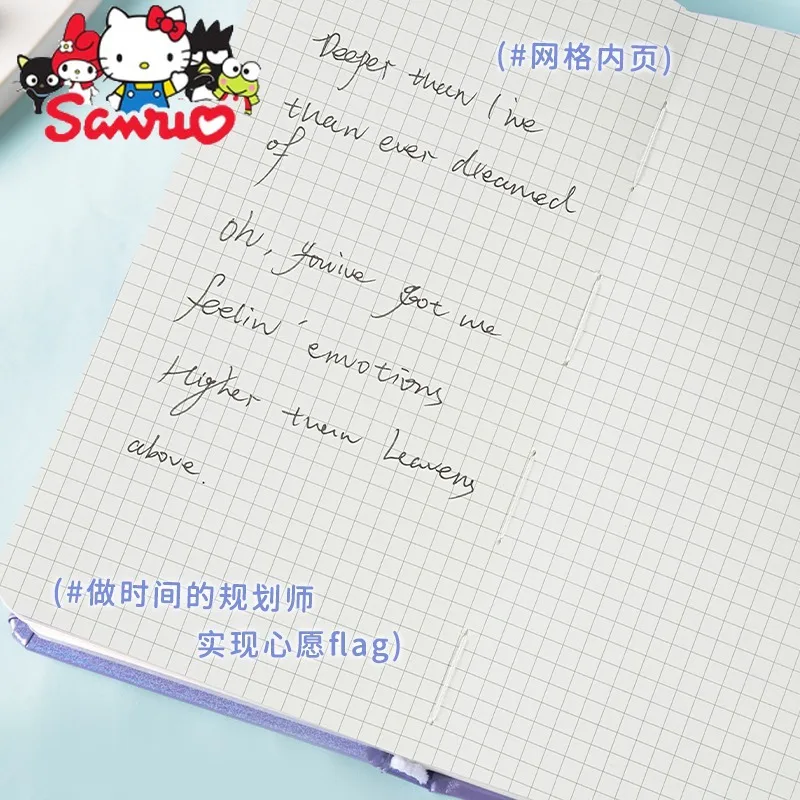 Sanrio
(#网格内页)
Deeper than I've
than ever dreamed
of
Oh, you've got me
feelin' emotions
Higher than heavens
above.
(#做时间的规划师
实现心愿flag)